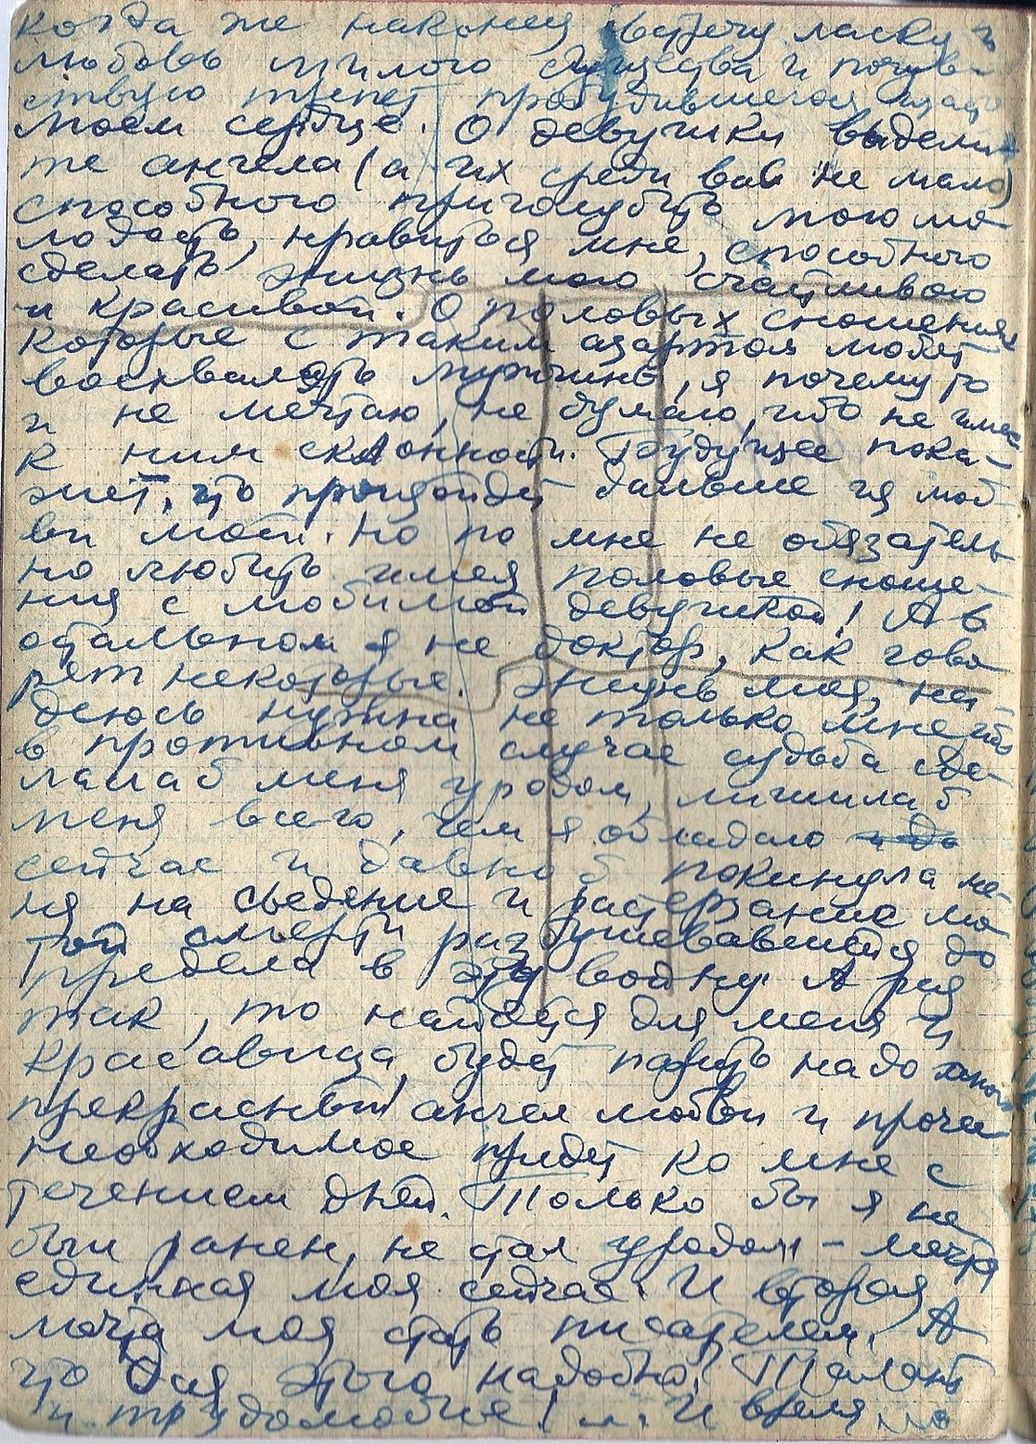 когда же наконец встречу ласку и
любовь милого существа и почув-
ствую трепет пробудившегося
моем сердце. О девушки выдели-
те ангела (а их среди вас не мало)
способного приголубить мою мо-
лодость, нравиться мне, способного
сделать жизнь мою счастливою
и красивой. О половых сношениях
которые с таким азартом любят
восхвалять мужчины, я почему то
и не мечтаю, не думаю, ибо не имею
к ним склонности. Будущее пока-
жет, что произойдет дальше из люб-
ви моей. Но по мне не обязатель-
но любить имея половые сноше-
ния с любимой девушкой! А в
остальном я не доктор, как гово-
рят некоторые. Жизнь моя, на-
деюсь нужна не только мне ибо
в противном случае судьба сде-
лала б меня уродом, лишила б
меня всего, чем я обладаю
сейчас и давно б покинула ме-
ня на съедение и растерзание лю-
той смерти разбушевавшейся до
предела в эту войну. А раз
так, то найдется для меня и
красавица, будет парить надо мною
прекрасный ангел любви и прочее
необходимое придет ко мне с
течением дней. Только бы я не
был ранен, не стал уродом – мечта
единая моя сейчас. И вторая
мечта моя стать писателем. А
что для этого надобно? Талант
и трудолюбие! И время